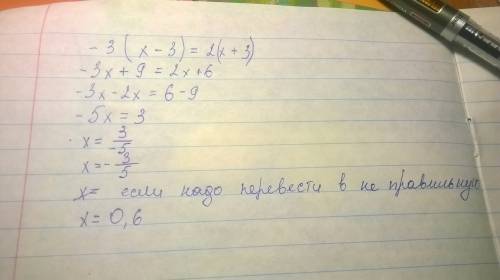 -3(x-3)=2(x+3)
-3x+9=2x+6
-3x-2x=6-9
-5x=3
x=3/-5
x=-3/5
x= если надо перевести в не правильную
x=0,6